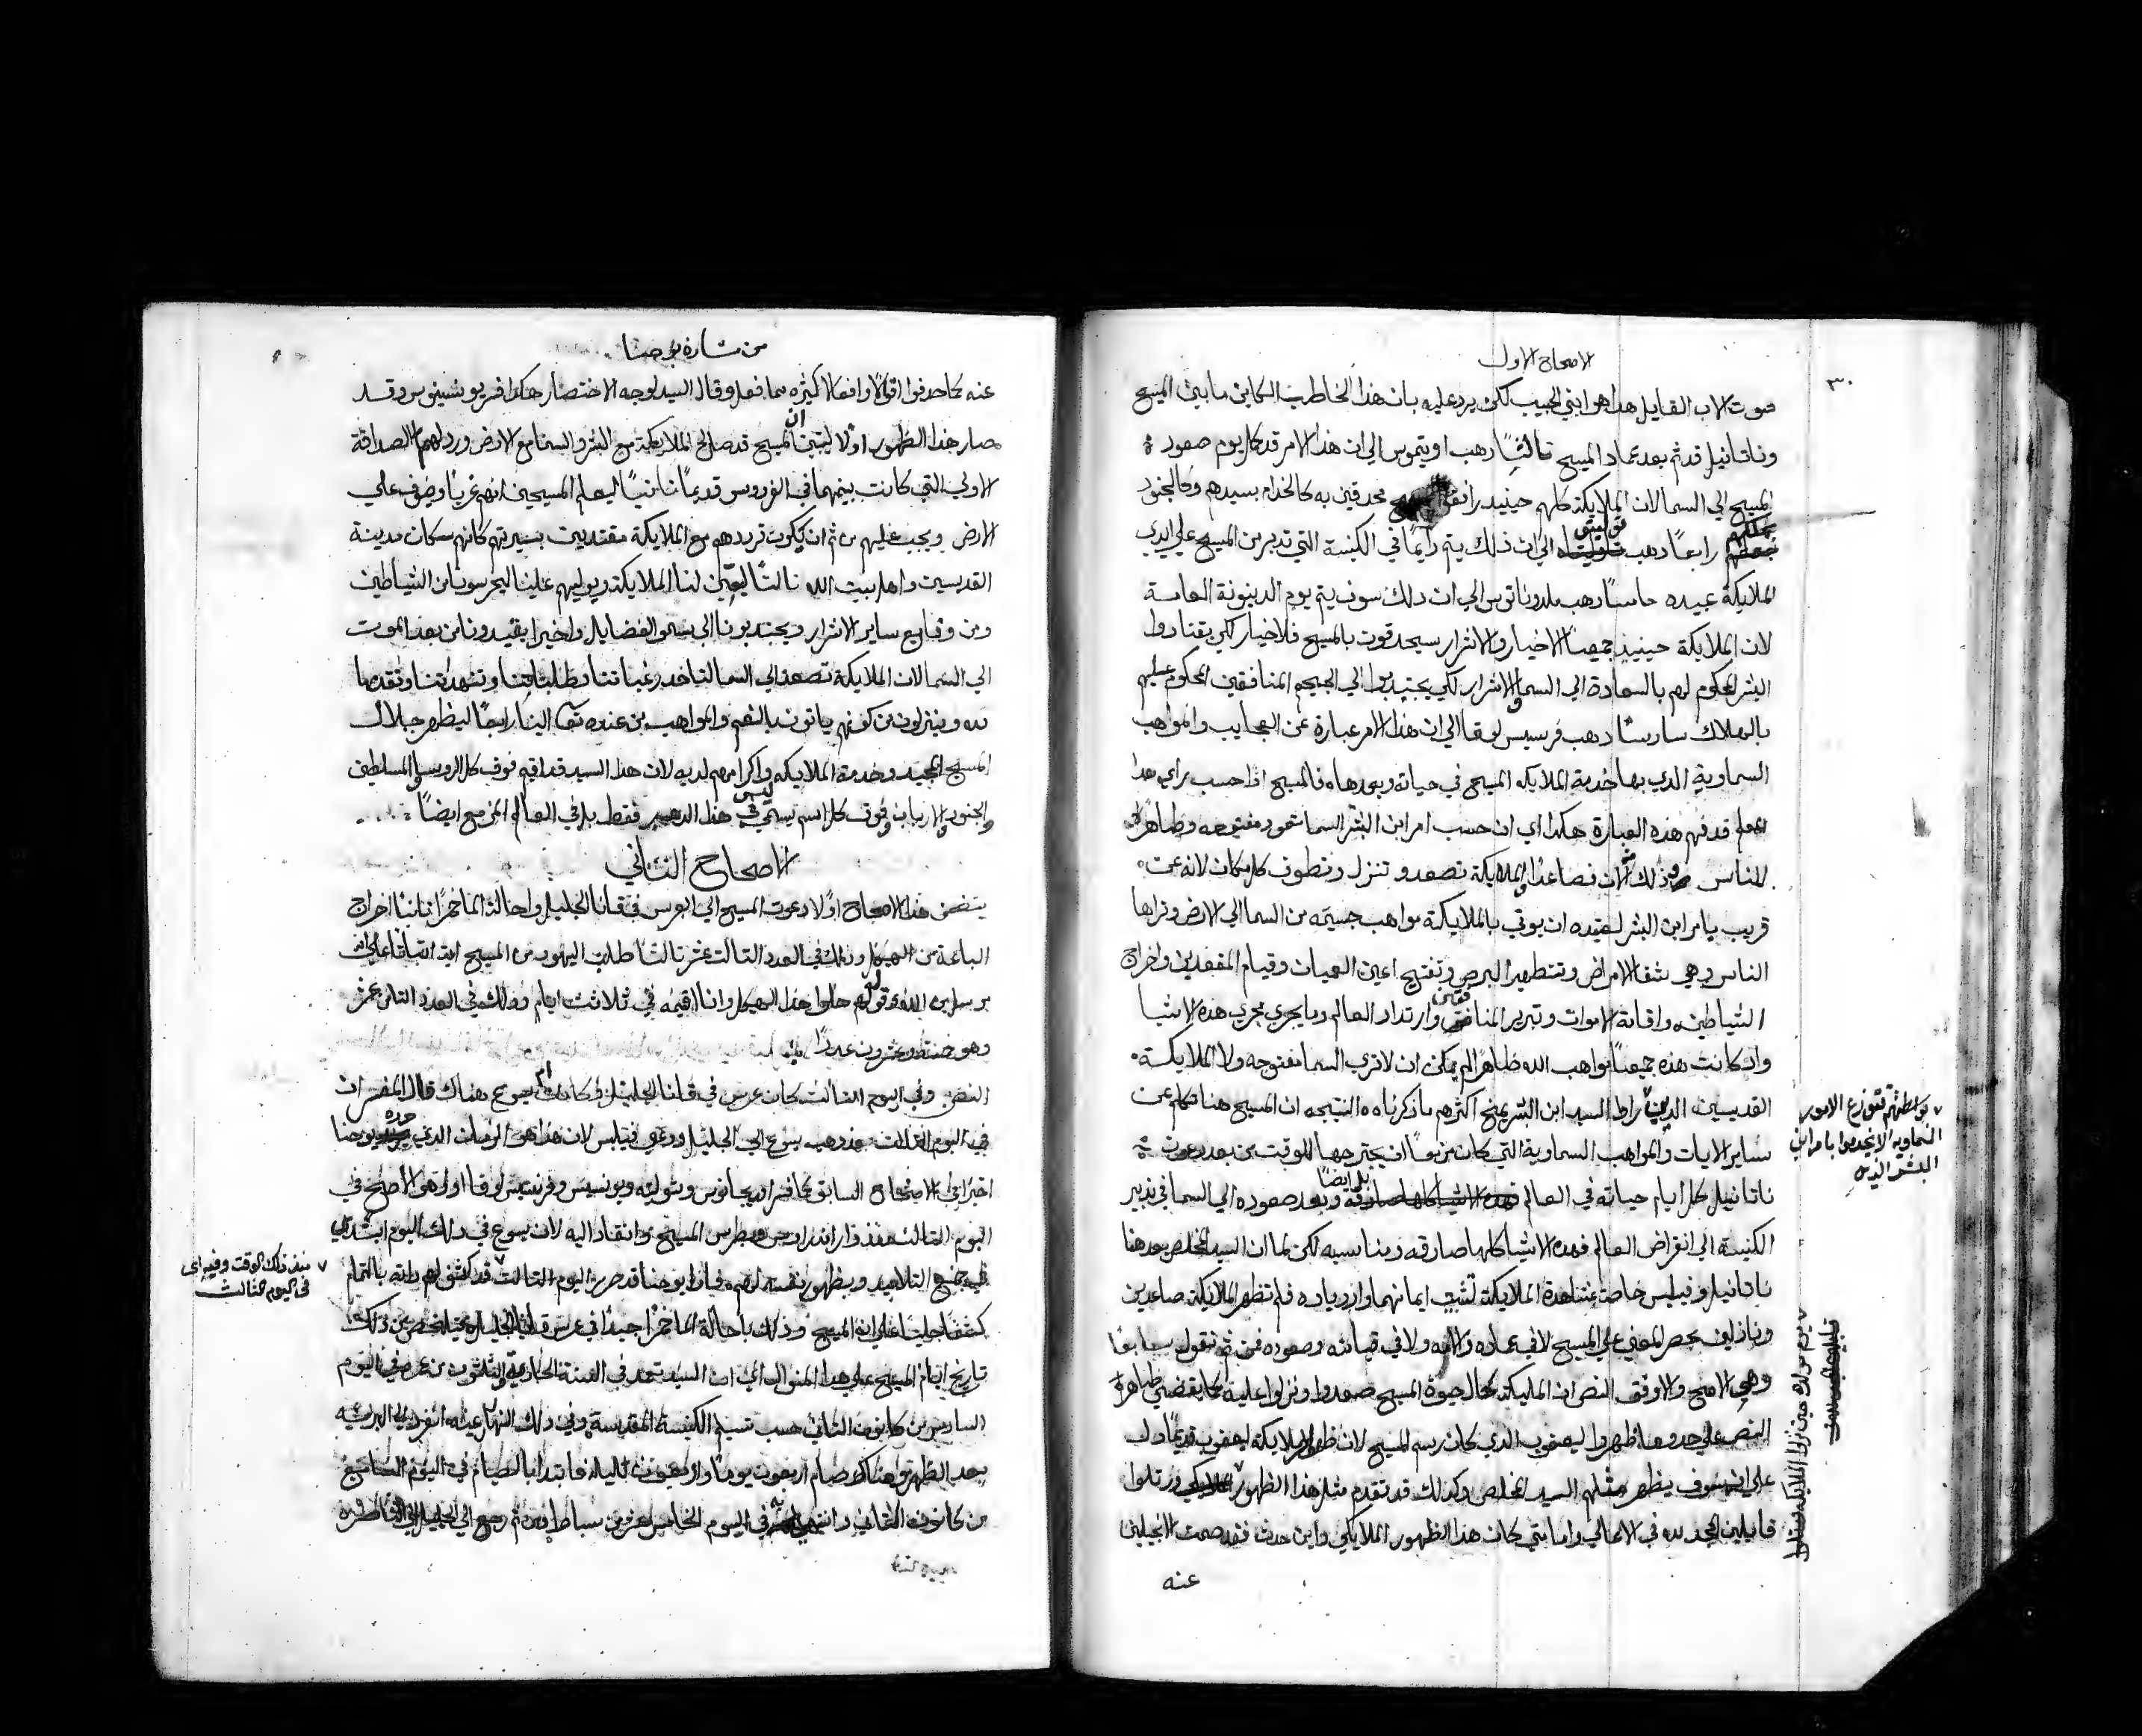 الاصحاح الاول
٣٠
صوت الاب القايل هذا هو ابني الحبيب لكن يرد عليه بان هذا الخاطر الكاين ما بين المسيح
وناتانيل قد تم بعد عماد المسيح ثالثًا دهب اوتيموس الي ان هذا الامر قد كمل يوم صعود
المسيح الي السما لان الملايكة كلهم حينيد محدقين به كالخدام بسيدهم وكالجنود
بملكهم رابعًا دهب الي ان ذلك يتم دايمًا في الكنيسة التي تدبر من المسيح علي ايدي
الملايكة عبيده خامسًا دهب ملدوناتوس الي ان دلك سوف يتم يوم الدينونة العامة
لان الملايكة حينيذ جميعًا الاخيار والاشرار سيحدقون بالمسيح فالاخيار لكي يقتادوا
البشر المحكوم لهم بالسعادة الي السما والاشرار لكي يجتدبوا الي الجحيم المنافقين المحكوم عليهم
بالهلاك سادسًا دهب فرنسيس لوقا الي ان هذا الامر عبارة عن العجايب والمواهب
السماوية الدي بها خدمة الملايكه المسيح في حياته وبعدها فالمسيح اذا حسب راي هدا
المعلم قد فهم هذه العبارة هكدا اي ان حسب امر ابن البشر السما تعود مفتوحه وظاهرة
للناس من ذلك الان فصاعدًا والملايكة تصعد و تنزل وتطوف كل مكان لانه عن
قريب يامر ابن البشر لعبيده ان يوتي بالملايكة مواهب جسيمه من السما الي الارض وتراها
الناس وهي شفا الامراض وتتطهير البرص وتفتيح اعين العميان وقيام المقعدين واخراج
الشياطين واقامة الاموات وتبرير المنافقين وارتداد العالم وما يجري مجري هذه الاشيا
واد كانت هذه جميعًا مواهب الله ظاهرًا لم يمكن ان لا تري السما مفتوحه ولا الملايكة
القديسين الدين راط السيد ابن البشر يمنح اكثرهم ما ذكرناه والنتيجه ان المسيح هنا تكلم عن
ساير الايات والمواهب السماوية التي كان مزمعًا ان يجترحها للوقت من بعد دعوت
بل ايضًا
ناتانيل كل ايام حياته في العالم وبعد صعوده الي السما في تدبير
الكنيسة الي انقراض العالم فهده الاشيا كلها صادقه ومناسبه لكن بما ان السيد المخلص يعد هنا
ناتانيل وفيلبس خاصة بمشاهدة الملايكة لتثبت ايمانهما وازدياده فلم تظهر الملايكة صاعدين
ونازلين بحصر المعني علي المسيح لا في عماده والامه ولا في قيامته وصعوده فمن ثم نقول سابعًا
وهو الاصح والاوفق النص ان المليكة بحال حيوة المسيح صعدوا ونزلوا عليه كما يقتضي ظاهرة
النص علي حدو ما ظهروا ليعقوب الدي كان رسم المسيح لان ظهور الملايكة ليعقوب قديمًا دلت
علي انه سوف يظهر مثلهم السيد المخلص وكدلك قد تقدم مثل هذا الظهور ورتلوا
قايلين المجد لله في الاعالي واما متي كان هدا الظهور الملايكي واين حدث فقد صمت الانجيليين
عنه
بواسطتهم تتوزع الامور
السماويه الا يخدموا بامر ابن
البشر الذين
يوم مولده حين نزل الملايكه
من بشارة يوحنا
عنه كما حدفوا اقوالًا وافعالًا كثيره مما فعل وقال السيد لوجه الاختصار هكدا فتريوشينوس وقد
صار هذا الظهور اولًا ليتبين ان المسيح قد صالح الملايكة مع البشر والسما مع الارض ورد لهم الصداقة
الاولي التي كانت بينهما في الفردوس قديمًا ثانيًا ليعلم المسيحين انهم غربا وضيوف علي
الارض ويجب عليهم من ثم ان يكون ترددهم مع الملايكة مقتديين بسيرتهم كانهم سكان مدينة
القديسين واهل بيت الله ثالثًا ليعين لنا الملايكة ويوليهم علينا ليحرسونا من الشياطين
ومن وقايع ساير الاشرار ويجتدبونا الي سمو الفضايل واخيرا يقيدونا من بعد الموت
الي السما لان الملايكة تصعد الي السما لتاخد رغباتنا وطلباتنا وتنهداتنا وتقدمها
لله وينزلون من كونهم ياتون بالنعم والمواهب من عنده تعالى الينا رابعًا ليظهر جلال
المسيح المجيد وخدمة الملايكه واكرامهم لديه لان هدا السيد قد اقيم فوق كل الروسا والمسلطين
والجنود والارباب وفوق كل اسم يسمي ليس في هذا الدهر فقط بل في العالم المزمع ايضًا
الاصحاح الثاني
يتضمن هذا الاصحاح اولًا دعوت المسيح الي العرس في قانا الجليل واحالة الما خمرًا ثانيًا اخراج
الباعة من الهيكل ودلك في العدد التالت عشر ثالثًا طلب اليهود من المسيح اية اثباتًا علي انه
مرسل من الله وقولهم حلوا هذا الهيكل وانا اقيمه في ثلاثت ايام ودلك في العدد الثامن عشر
وهو خمسة وعشرون عددًا
النص وفي اليوم الثالث كان عرس في قانا الجليل وكانت ام يسوع هناك قال المفسر ان
في اليوم الثالث مند دهب يسوع الي الجليل ودعي فيلبس لان هذا هو الزمان الدي حرره يوحنا
اخيرًا في الاصحاح السابق
اليوم الثالث منذ قاد اندراوس بطرس للمسيح وانقاد اليه لان يسوع في دلك اليوم ابتدي
جميع التلاميد وبظهور نفسه لهم فادا يوحنا قد حرر اليوم التالت قد كشف لهم داته بالتمام
كشفًا جليًا علي انه المسيح وذلك باحالة الما خمرًا جيدًا في عرس قانا الجليل
تاريخ ايام المسيح علي هدا المنوال اي ان السيد تعمد في السنة الحادية والثلثون من عمره في اليوم
السادس من كانون الثاني حسب تسليم الكنيسة المقدسة وفي دلك النهار عينه انفرد الي البريه
بعد الظهر وهناك صام اربعون يومًا واربعون ليلة فابتدا بالصيام في اليوم السابع
من كانون الثاني في اليوم الخامس عشر من شباط ومن ثم رجع الي الجليل الي الناصره
منذ ذلك الوقت وفيه اي
في اليوم الثالث